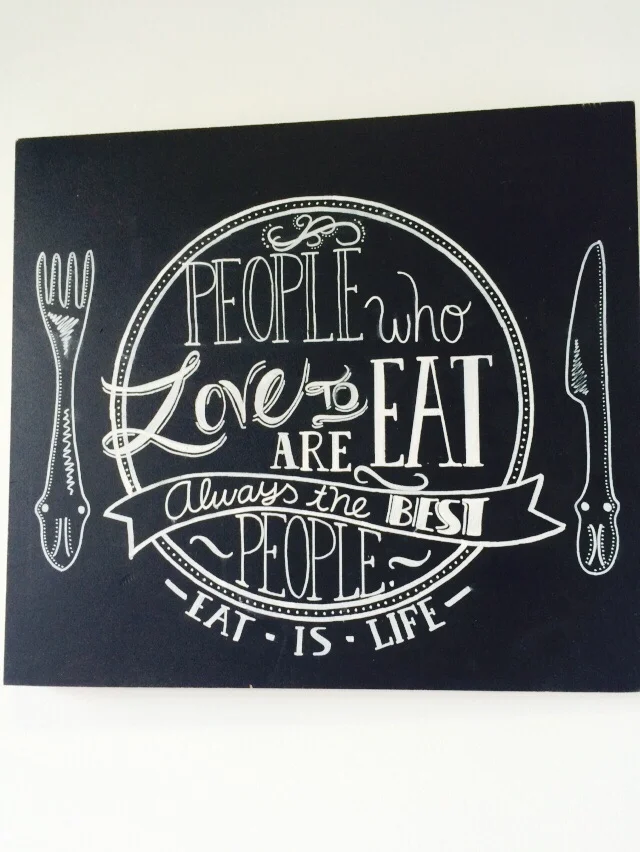 PEOPLE who
Love TO EAT
ARE
Always the BEST
~PEOPLE.~
- EAT - IS - LIFE -